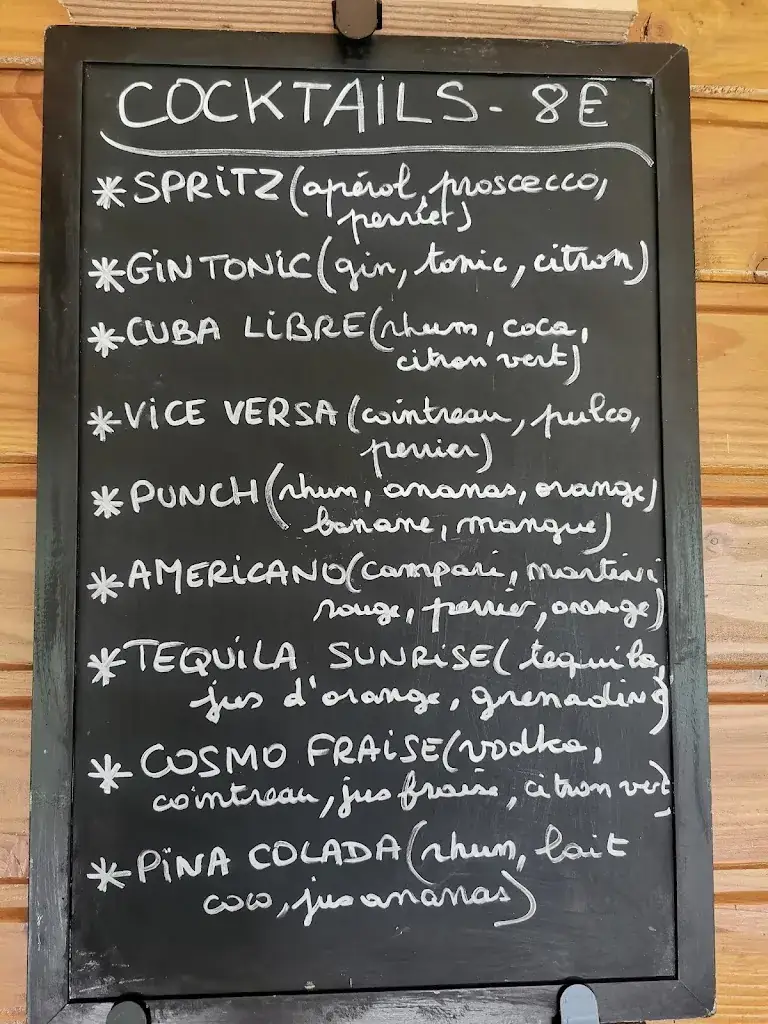 COCKTAILS - 8E
* SPRITZ (apérol, proscecco,
perrier)
* GIN TONIC (gin, tonic, citron)
* CUBA LIBRE (rhum, coca,
citron vert)
* VICE VERSA (cointreau, pulco,
perrier)
* PUNCH (rhum, ananas, orange)
banane, mangue)
* AMERICANO (campari, martini
rouge, perrier, orange)
* TEQUILA SUNRISE (tequila,
jus d'orange, grenadine)
* COSMO FRAISE (vodka,
cointreau, jus fraise, citron vert)
* PINA COLADA (rhum, lait
coco, jus ananas)